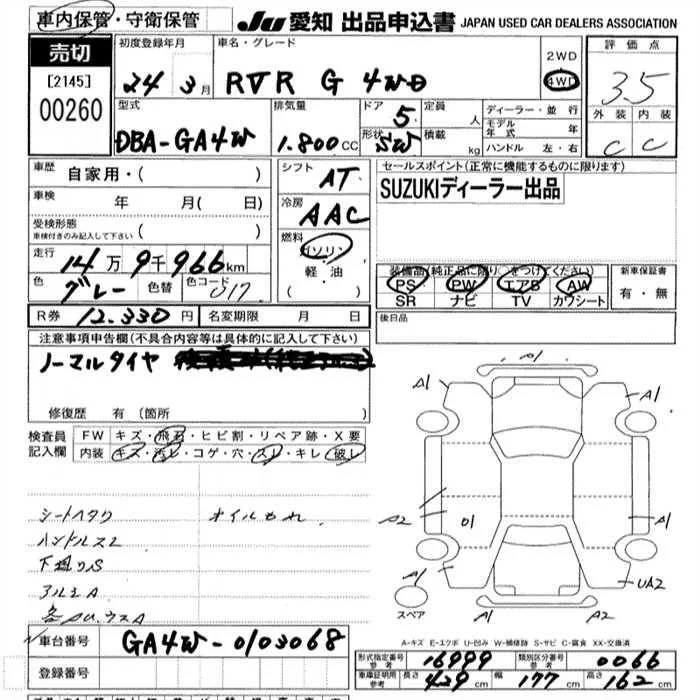 車内保管・守衛保管
JU 愛知 出品申込書 JAPAN USED CAR DEALERS ASSOCIATION
売切
[2145]
00260
初度登録年月
24 3月
車名・グレード
RVR G 4WD
2WD
4WD
評価点
3.5
外装 内装
C C
型式
DBA-GA4W
排気量
1.800CC
ドア
5
形状
SW
定員
人
積載
kg
ディーラー・並行
モデル年式 年
ハンドル 左・右
車歴 自家用・( )
車検 年 月( 日)
受検形態
車検付きのみ記入して下さい ( )
走行 14万9千966km
色 グレー 色替 色コード U17
シフト AT
冷房 AAC
燃料
ガソリン
・
軽・油
( )
セールスポイント(正常に機能するものに限ります)
SUZUKIディーラー出品
装備品(純正品に限り○をつけてください)
PS PW エアB AW
SR ナビ TV カワシート
新車保証書
有・無
R券 12.330円 名変期限 月 日
後日品
注意事項申告欄(不具合内容等は具体的に記入して下さい)
ノーマルタイヤ
修復歴 有 (箇所 )
検査員記入欄
FW キズ・飛石・ヒビ割・リペア跡・X要
内装 キズ・汚レ・コゲ・穴・スレ・キレ・破レ
シートヘタリ オイルもれ
ハンドルスレ
下廻りS
アルミA
A1
A1
A1
A2
01
A1
A1
UA2
スペア
A1
A2
A-キズ E-エクボ U-凹み W-補修跡 S-サビ C-腐食 XX-交換済
車台番号 GA4W-0103068
登録番号
形式指定番号参考 16999 類別区分番号参考 0066
車庫証明用参考 長さ 429cm 幅 177cm 高さ 162cm